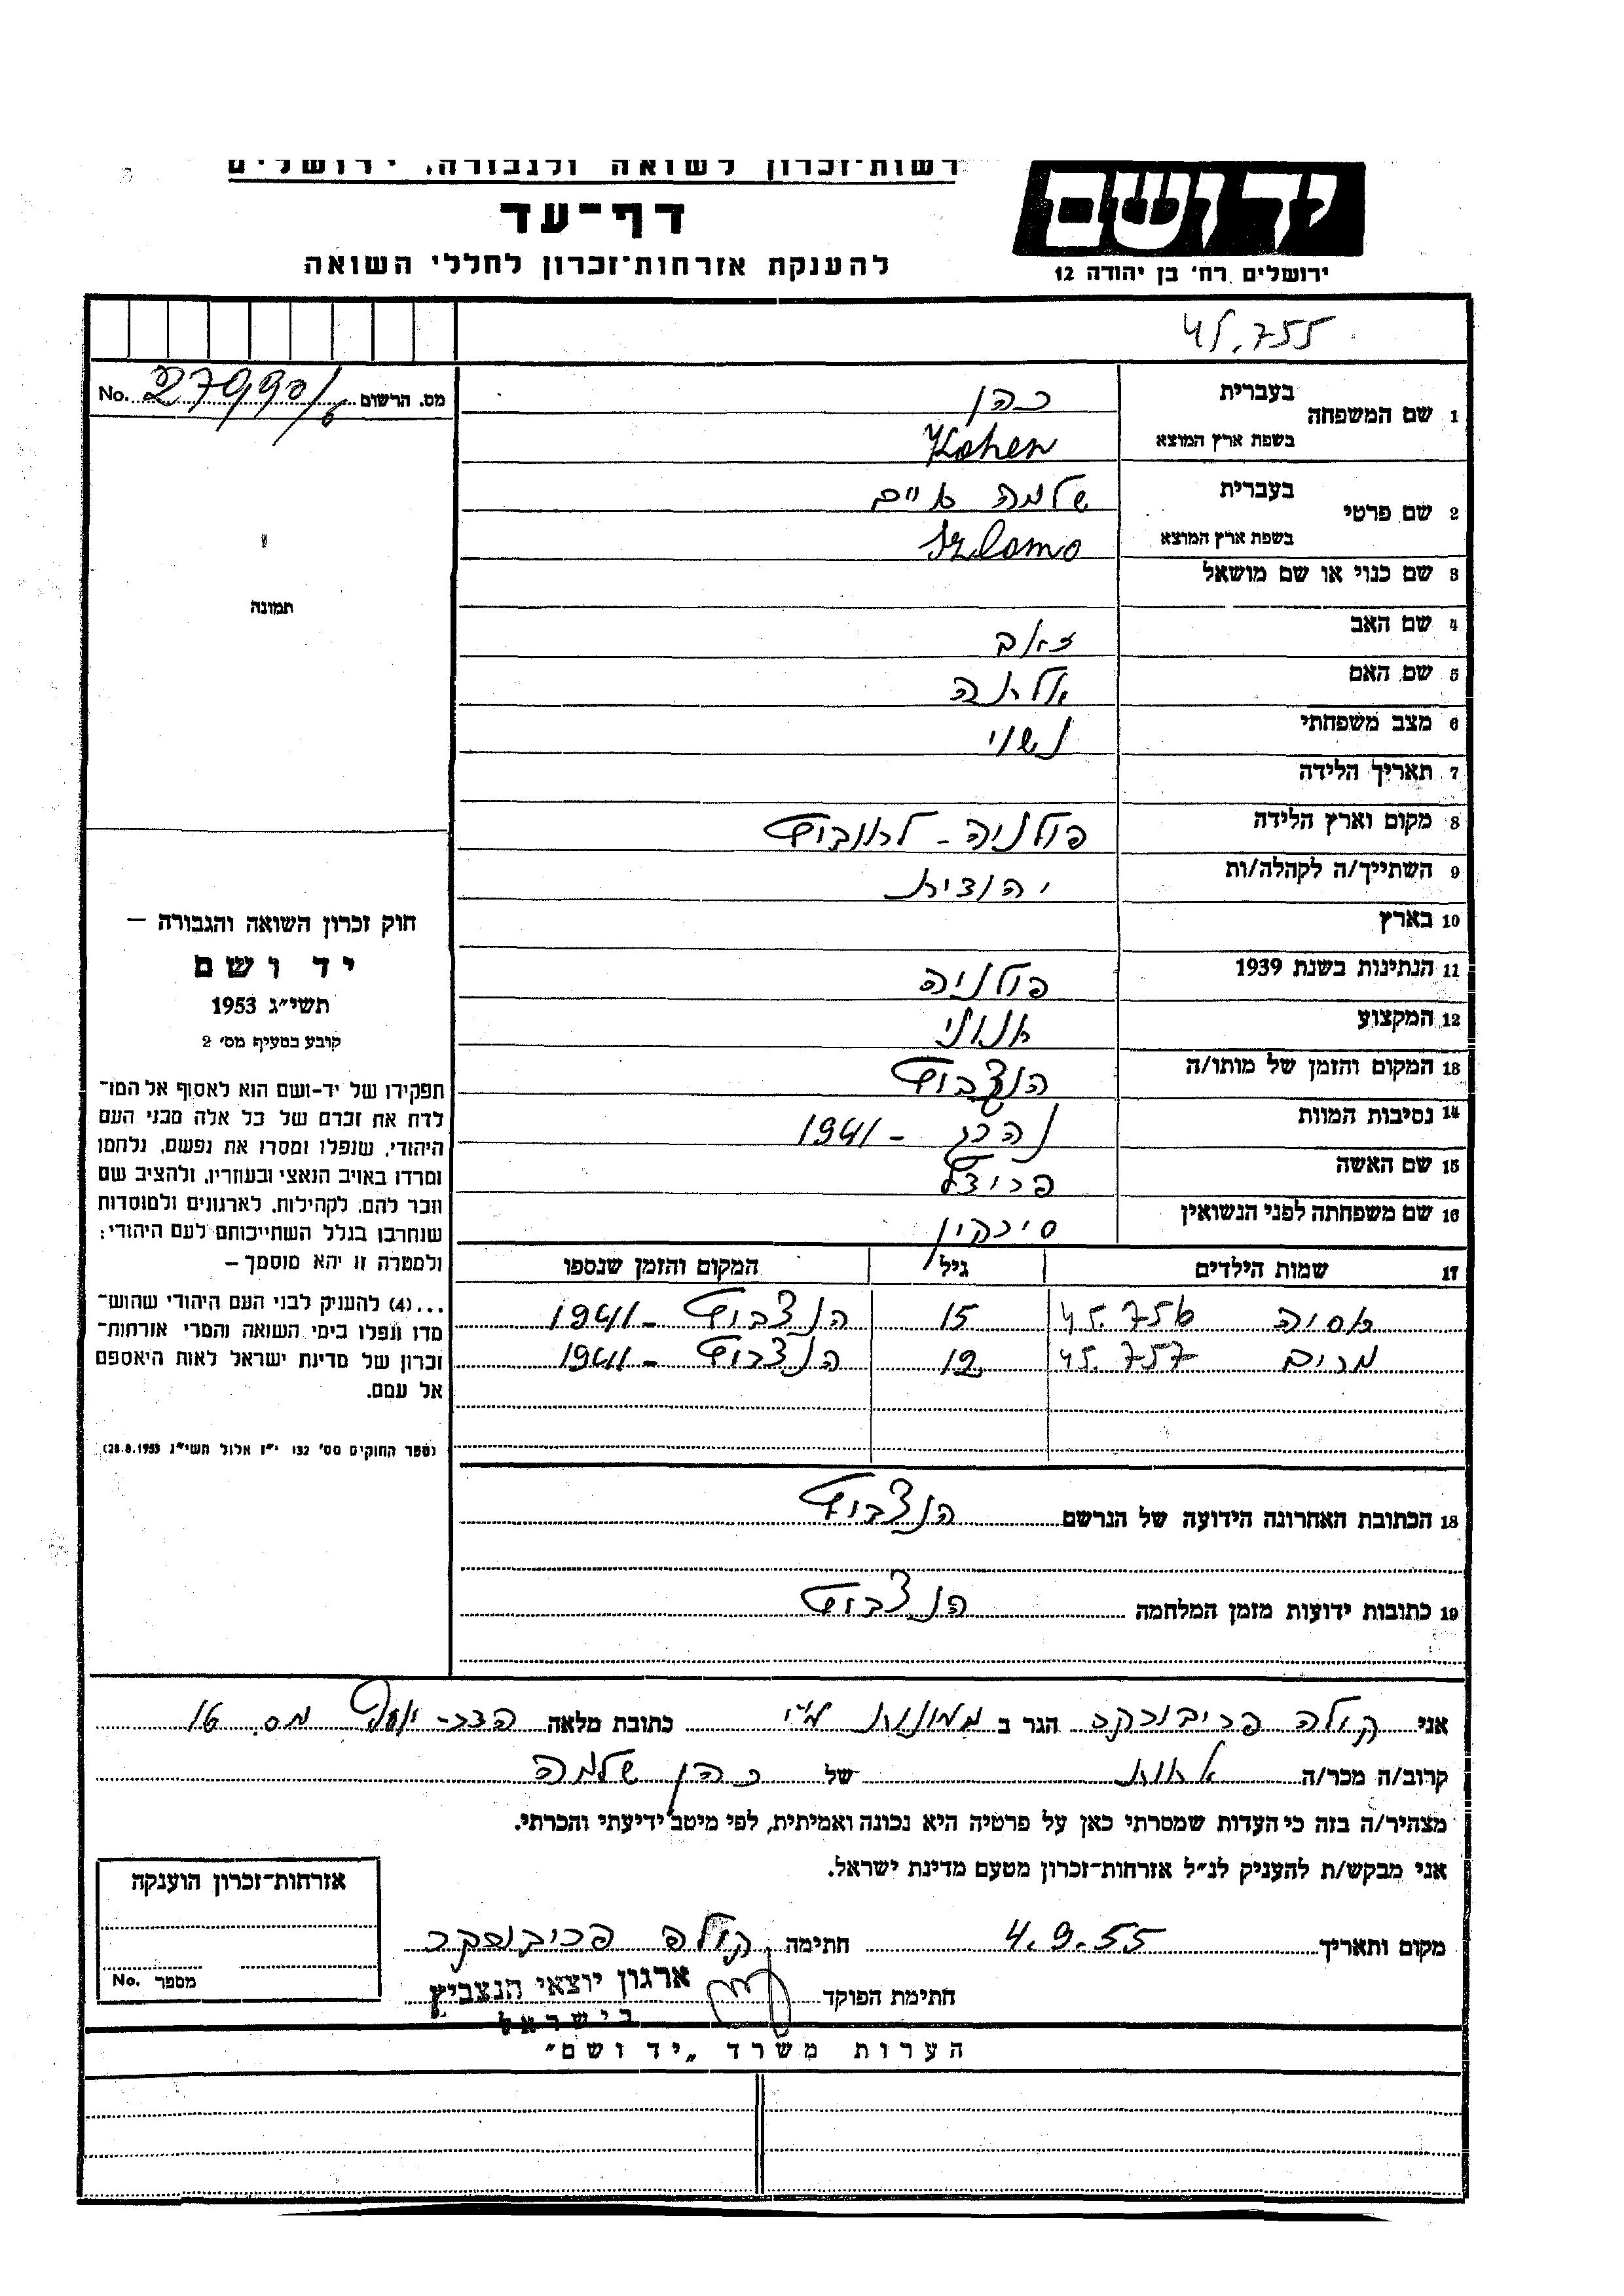 רשות־זכרון לשואה ולגבורה, ירושלים
יד ושם
דף־עד
ירושלים רח׳ בן יהודה 12
להענקת אזרחות־זכרון לחללי השואה
45.755
מס. הרשום 27990/6 No.
1 שם המשפחה בעברית כהן
בשפת ארץ המוצא Kohen
2 שם פרטי בעברית שלמה
בשפת ארץ המוצא Szlomo
3 שם כנוי או שם מושאל
תמונה
4 שם האב זאב
5 שם האם
6 מצב משפחתי נשוי
7 תאריך הלידה
8 מקום וארץ הלידה פולניה -
9 השתייך/ה לקהלה/ות יהודית
10 בארץ
11 הנתינות בשנת 1939 פולניה
12 המקצוע
13 המקום והזמן של מותו/ה הנצביץ
14 נסיבות המוות נהרג - 1941
15 שם האשה פריידל
16 שם משפחתה לפני הנשואין
חוק זכרון השואה והגבורה –
יד ושם
תשי״ג 1953
קובע בסעיף מס׳ 2
תפקידו של יד-ושם הוא לאסוף אל המו־
לדת את זכרם של כל אלה מבני העם
היהודי, שנפלו ומסרו את נפשם, נלחמו
ומרדו באויב הנאצי ובעוזריו, ולהציב שם
וזכר להם, לקהילות, לארגונים ולמוסדות
שנחרבו בגלל השתייכותם לעם היהודי;
ולמטרה זו יהא מוסמך –
...(4) להעניק לבני העם היהודי שהוש־
מדו ונפלו בימי השואה והמרי אזרחות־
זכרון של מדינת ישראל לאות היאספם
אל עמם.
(ספר החוקים מס׳ 132 י״ז אלול תשי״ג 28.8.1953)
17 שמות הילדים גיל המקום והזמן שנספו
אסיה 45.756 15 הנצביץ - 1941
מרים 45.757 12 הנצביץ - 1941
18 הכתובת האחרונה הידועה של הנרשם הנצביץ
19 כתובות ידועות מזמן המלחמה הנצביץ
אני קולה פריבולסקי הגר ב כתובת מלאה מס. 16
קרוב/ה מכר/ה אחות של כהן שלמה
מצהיר/ה בזה כי העדות שמסרתי כאן על פרטיה היא נכונה ואמיתית, לפי מיטב ידיעתי והכרתי.
אני מבקש/ת להעניק לנ״ל אזרחות־זכרון מטעם מדינת ישראל.
מקום ותאריך 4.9.55 חתימה
חתימת הפוקד ארגון יוצאי הנצביץ
בישראל
אזרחות־זכרון הוענקה
מספר No.
הערות משרד „יד ושם״